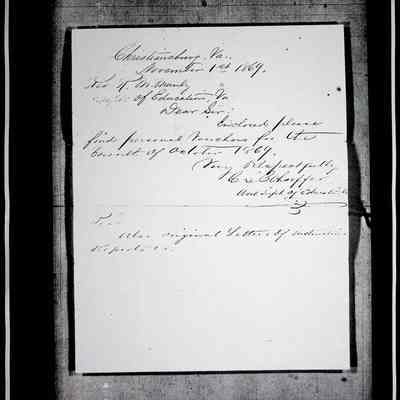 Christiansburg, Va.,
November 1st 1869.
Rev. R. M. Manly
Supt. of Education, Va
Dear Sir:
Enclosed please
find personal Vouchers for the
month of October 1869.
Very Respectfully
C. S. Schaeffer
Asst Supt. of Education
P.S.
Also original Letters of